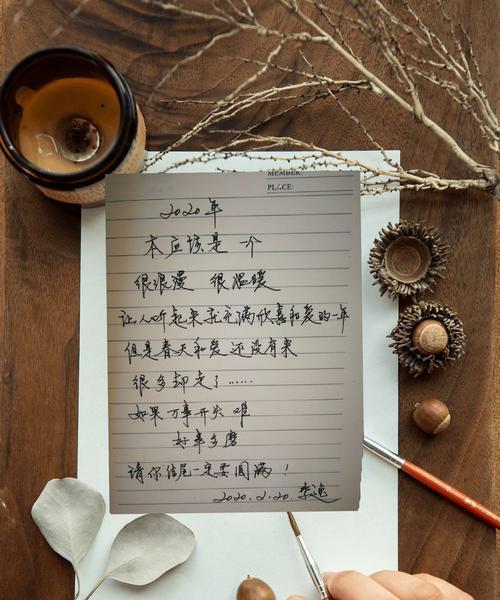 MEMBER:
PLACE:
2020年
本应该是一个
很浪漫 很温暖
让人听起来就充满欣喜和爱的一年
但是春天和爱还没有来
很多却走了……
如果万事开头难
好事多磨
请你结尾一定要圆满！
2020.2.20.